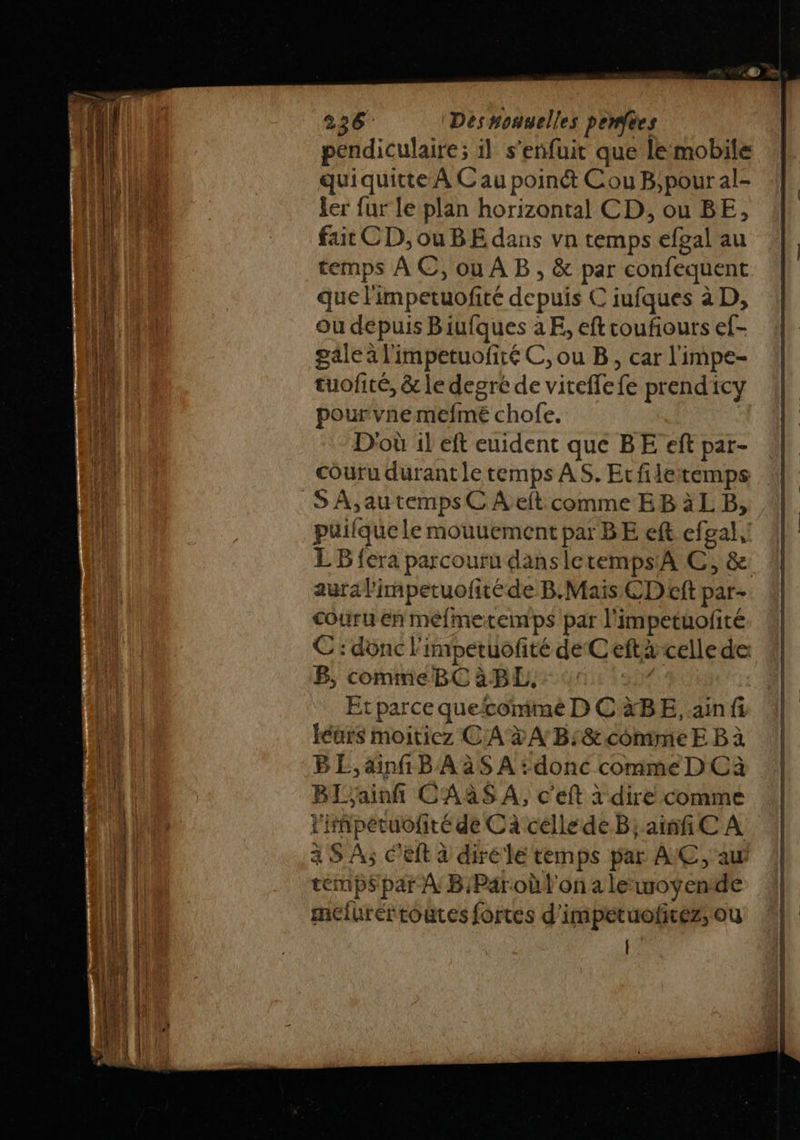 236 Des nouuelles penſées
pendiculaire; il s'enſuit que le mobile
qui quitte A C au poinct C ou B, pour al-
ler ſur le plan horizontal CD, ou BE,
fait CD, ou BE dans vn temps eſgal au
temps A C, ou A B, & par conſequent
que l'impetuoſité depuis C iuſques à D,
ou depuis B iuſques à E, eſt touſiours eſ-
gale à l'impetuoſité C, ou B, car l'impe-
tuoſité, & le degré de viteſſe ſe prend icy
pour vne meſmé choſe.
D'où il eſt euident que BE eſt par-
couru durant le temps AS. Et ſi le temps
S A, au temps C A eſt comme EB à L B,
puiſque le mouuement par BE eſt eſgal,
L B ſera parcouru dans le temps A C, &
aura l'impetuoſité de B. Mais CD eſt par-
couru en meſme temps par l'impetuoſité
C : donc l'impetuoſité de C eſt à celle de
B, comme BC à BL.
Et parce que comme D C à BE, ainſi
leurs moitiez C A à A B. & comme E B à
B L, ainſi B A à S A : donc comme D C à
BL, ainſi C A à S A, c'eſt à dire comme
l'impetuoſité de C à celle de B, ainſi C A
à S A; c'eſt à dire le temps par A C, au
temps par A B. Par où l'on a le moyen de
meſurer toutes ſortes d'impetuoſitez, ou